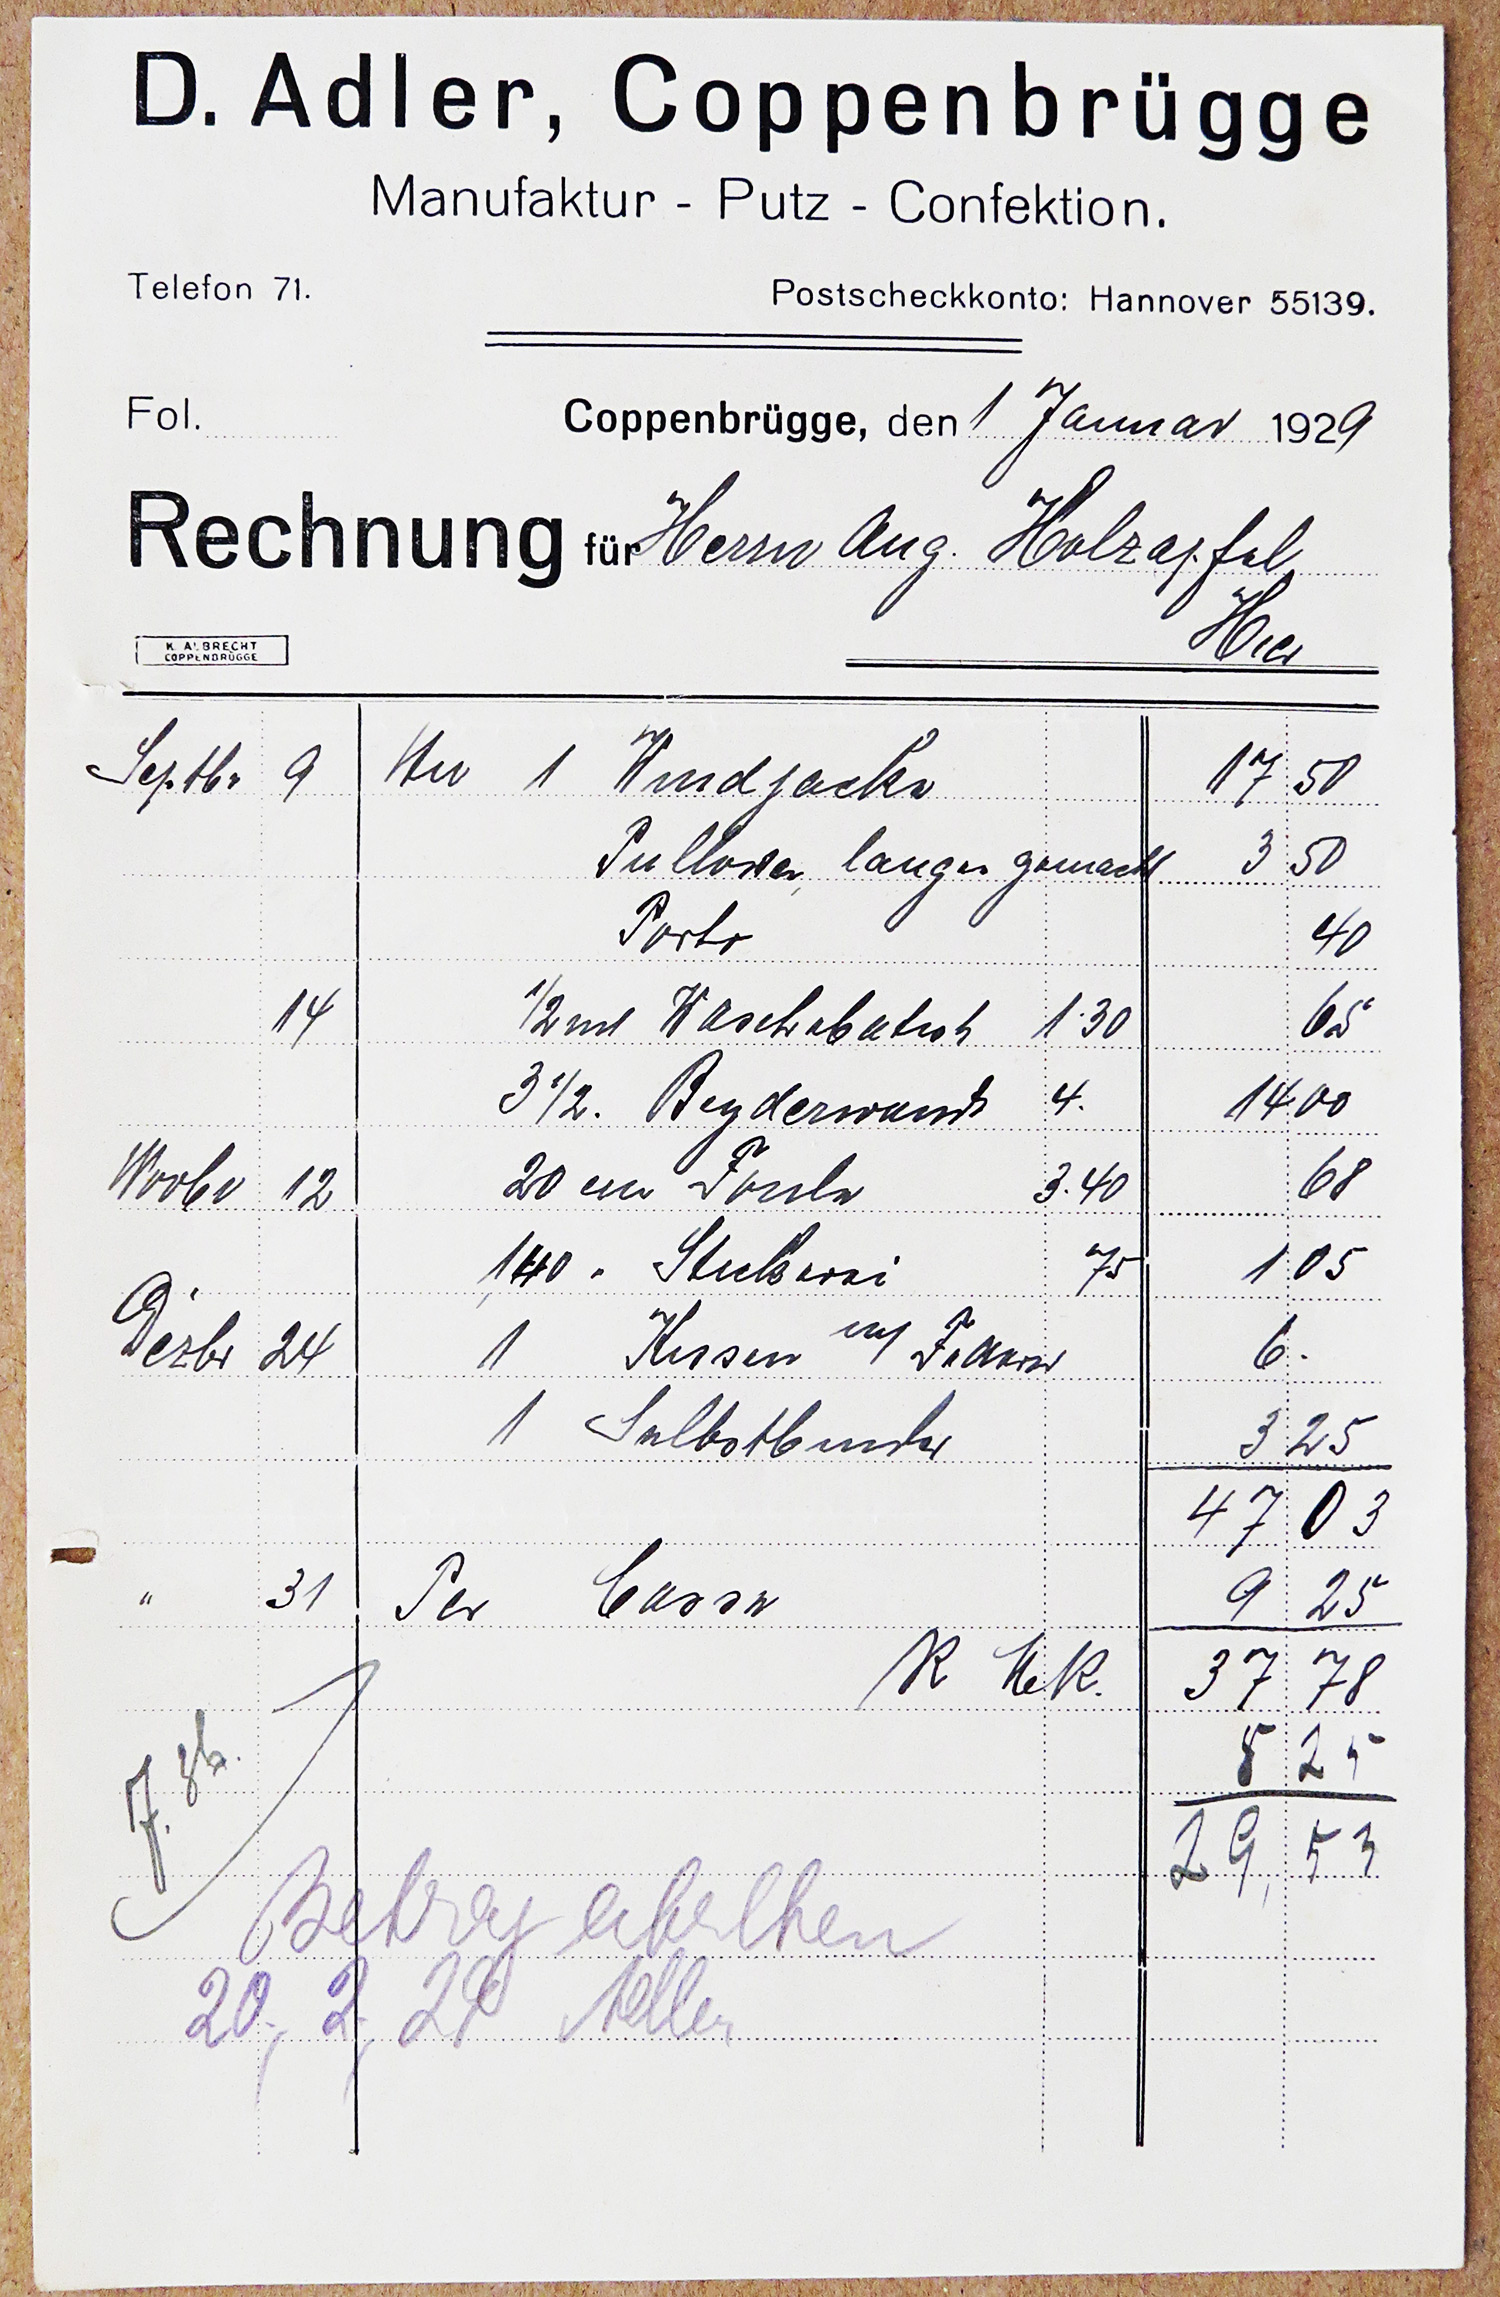 D. Adler, Coppenbrügge
Manufaktur - Putz - Confektion.
Telefon 71. Postscheckkonto: Hannover 55139.
Fol. Coppenbrügge, den 1 Januar 1929
Rechnung für Herrn Aug. Holzapfel
Hier
K. ALBRECHT
COPPENBRÜGGE
Septbr 9 An 1 Windjacke 17 50
Pullover, langer gemacht 3 50
Porto 40
14 1/2 mt Waschebatist 1.30 65
3 1/2. Beyderwand 4. 14.00
Novbr 12 20 cm 3.40 68
1,40 " Stickerei 75 1 05
Dezbr 24 1 Kissen mt Federn 6.
1 Selbstbinder 3 25
47 03
" 31 Per Cassa 9 25
R Mk. 37 78
8 25
29,53
Betrag erhalten
20. 2. 29 Adler